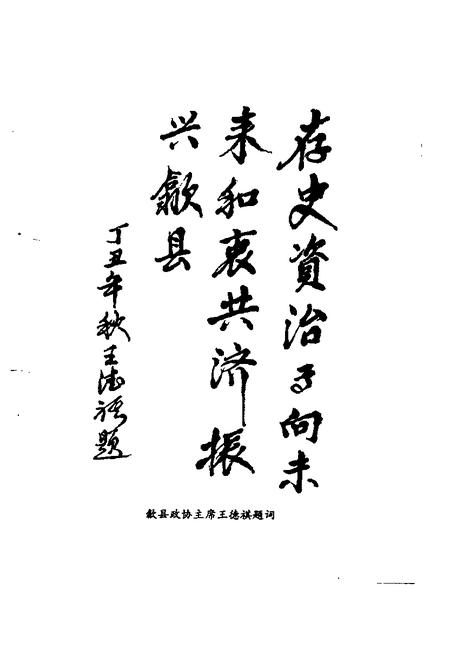 存史資治面向未
来和衷共济振
兴歙县
丁丑年秋王德祺题
歙县政协主席王德祺题词